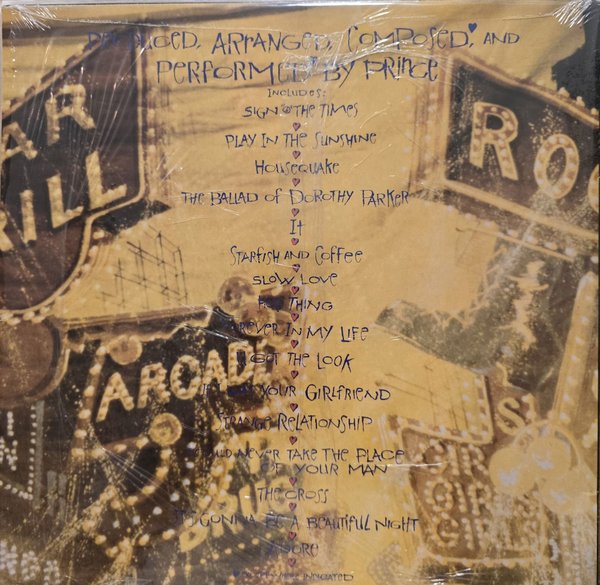 PRODUCED, ARRANGED, COMPOSED, AND
PERFORMED BY PRINCE
INCLUDES:
SIGN THE TIMES
PLAY IN THE SUNSHINE
HOUSEQUAKE
THE BALLAD OF DOROTHY PARKER
IT
STARFISH AND COFFEE
SLOW LOVE
HOT THING
FOREVER IN MY LIFE
U GOT THE LOOK
IF I WAS YOUR GIRLFRIEND
STRANGE RELATIONSHIP
I COULD NEVER TAKE THE PLACE
OF YOUR MAN
THE CROSS
IT'S GONNA BE A BEAUTIFUL NIGHT
ADORE
INDICATED
BAR
GRILL
ARCADE
RO
GIRLS
GIRLS
GIRLS